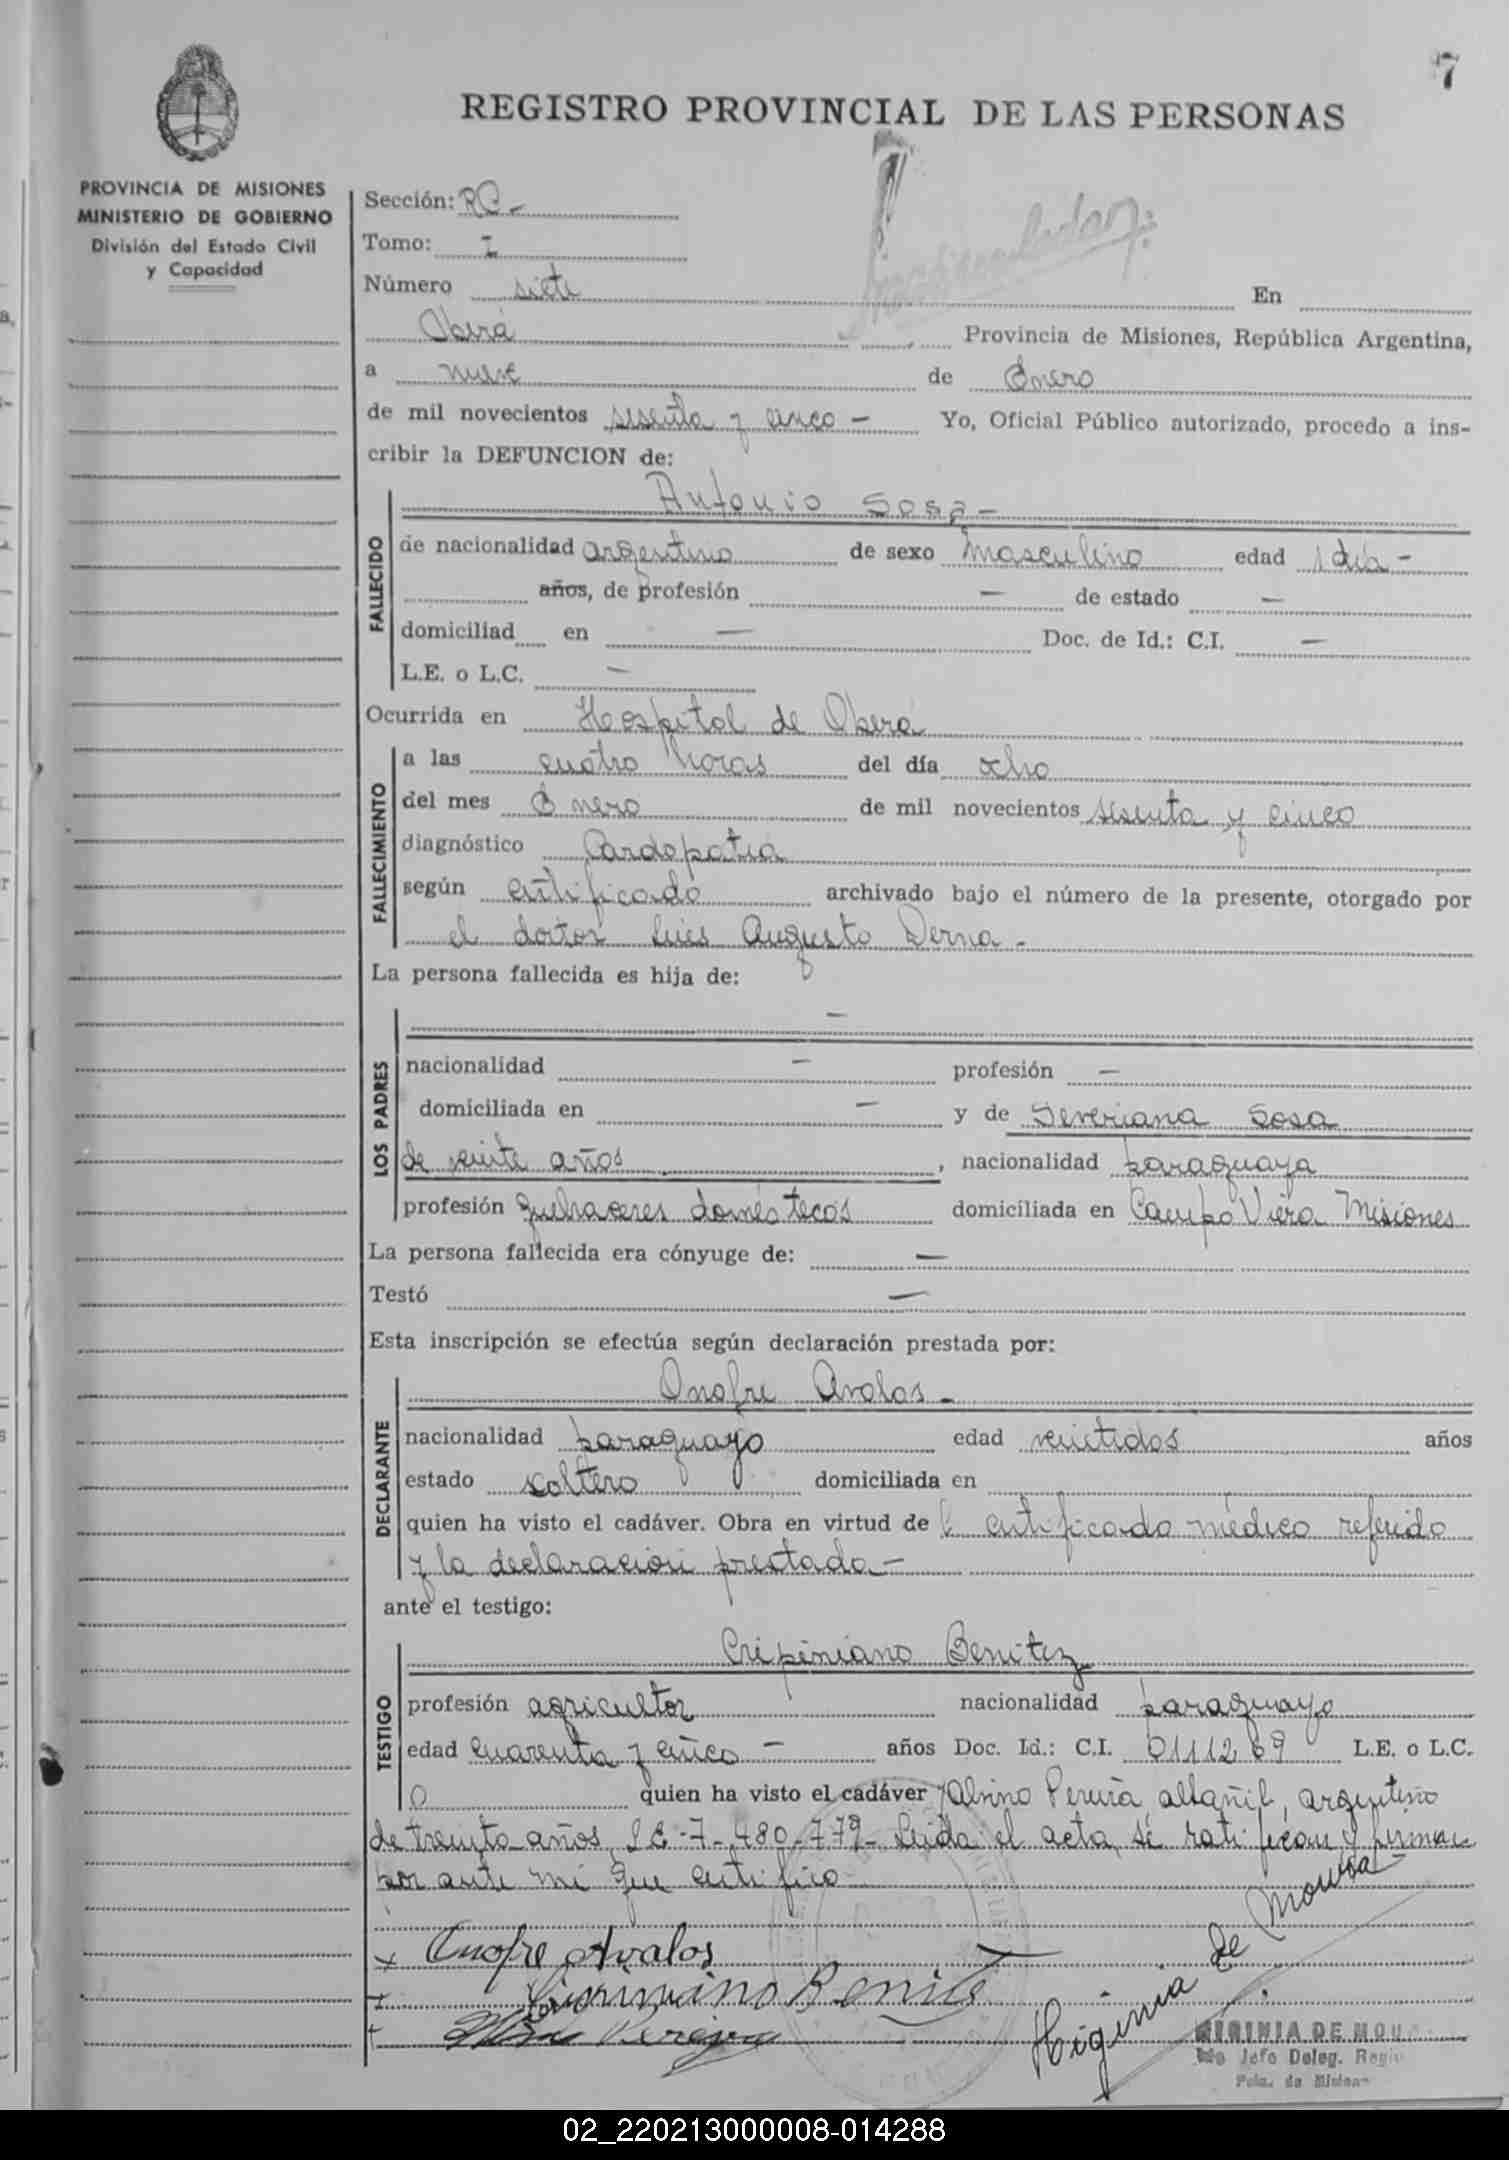 7
REGISTRO PROVINCIAL DE LAS PERSONAS
PROVINCIA DE MISIONES
MINISTERIO DE GOBIERNO
División del Estado Civil
y Capacidad
Sección: RC -
Tomo: I
Número siete En
Oberá Provincia de Misiones, República Argentina,
a nueve de Enero
de mil novecientos sesenta y cinco - Yo, Oficial Público autorizado, procedo a ins-
cribir la DEFUNCION de:
FALLECIDO
Antonio Sosa -
de nacionalidad argentino de sexo masculino edad 1 dia -
años, de profesión — de estado —
domiciliad en — Doc. de Id.: C.I. —
L.E. o L.C. —
Ocurrida en Hospital de Oberá
FALLECIMIENTO
a las cuatro horas del día ocho
del mes Enero de mil novecientos sesenta y cinco
diagnóstico Cardopatia
según certificado archivado bajo el número de la presente, otorgado por
el doctor Luis Augusto Derna -
La persona fallecida es hija de:
LOS PADRES
—
nacionalidad — profesión —
domiciliada en — y de Severiana Sosa
de veinte años, nacionalidad paraguaya
profesión quehaceres domésticos domiciliada en Campo Viera Misiones
La persona fallecida era cónyuge de: —
Testó —
Esta inscripción se efectúa según declaración prestada por:
DECLARANTE
Onofre Avalos -
nacionalidad paraguayo edad veintidos años
estado soltero domiciliada en
quien ha visto el cadáver. Obra en virtud del certificado médico referido
y la declaración prestada -
ante el testigo:
TESTIGO
Cripiniano Benitez
profesión agricultor nacionalidad paraguayo
edad cuarenta y cinco - años Doc. Id.: C.I. 0111269 L.E. o L.C.
0 quien ha visto el cadáver y Albino Pereira, albañil, argentino
de treinta años, L.E. 7-480-779- Leida el acta, se ratifican y firman
por ante mi que certifico
x Onofre Avalos
Benites
Pereira
Higinia de Moura
HIGINIA DE MOU
Jefe Deleg. Regio
Pcia. de Misiones
02_220213000008-014288